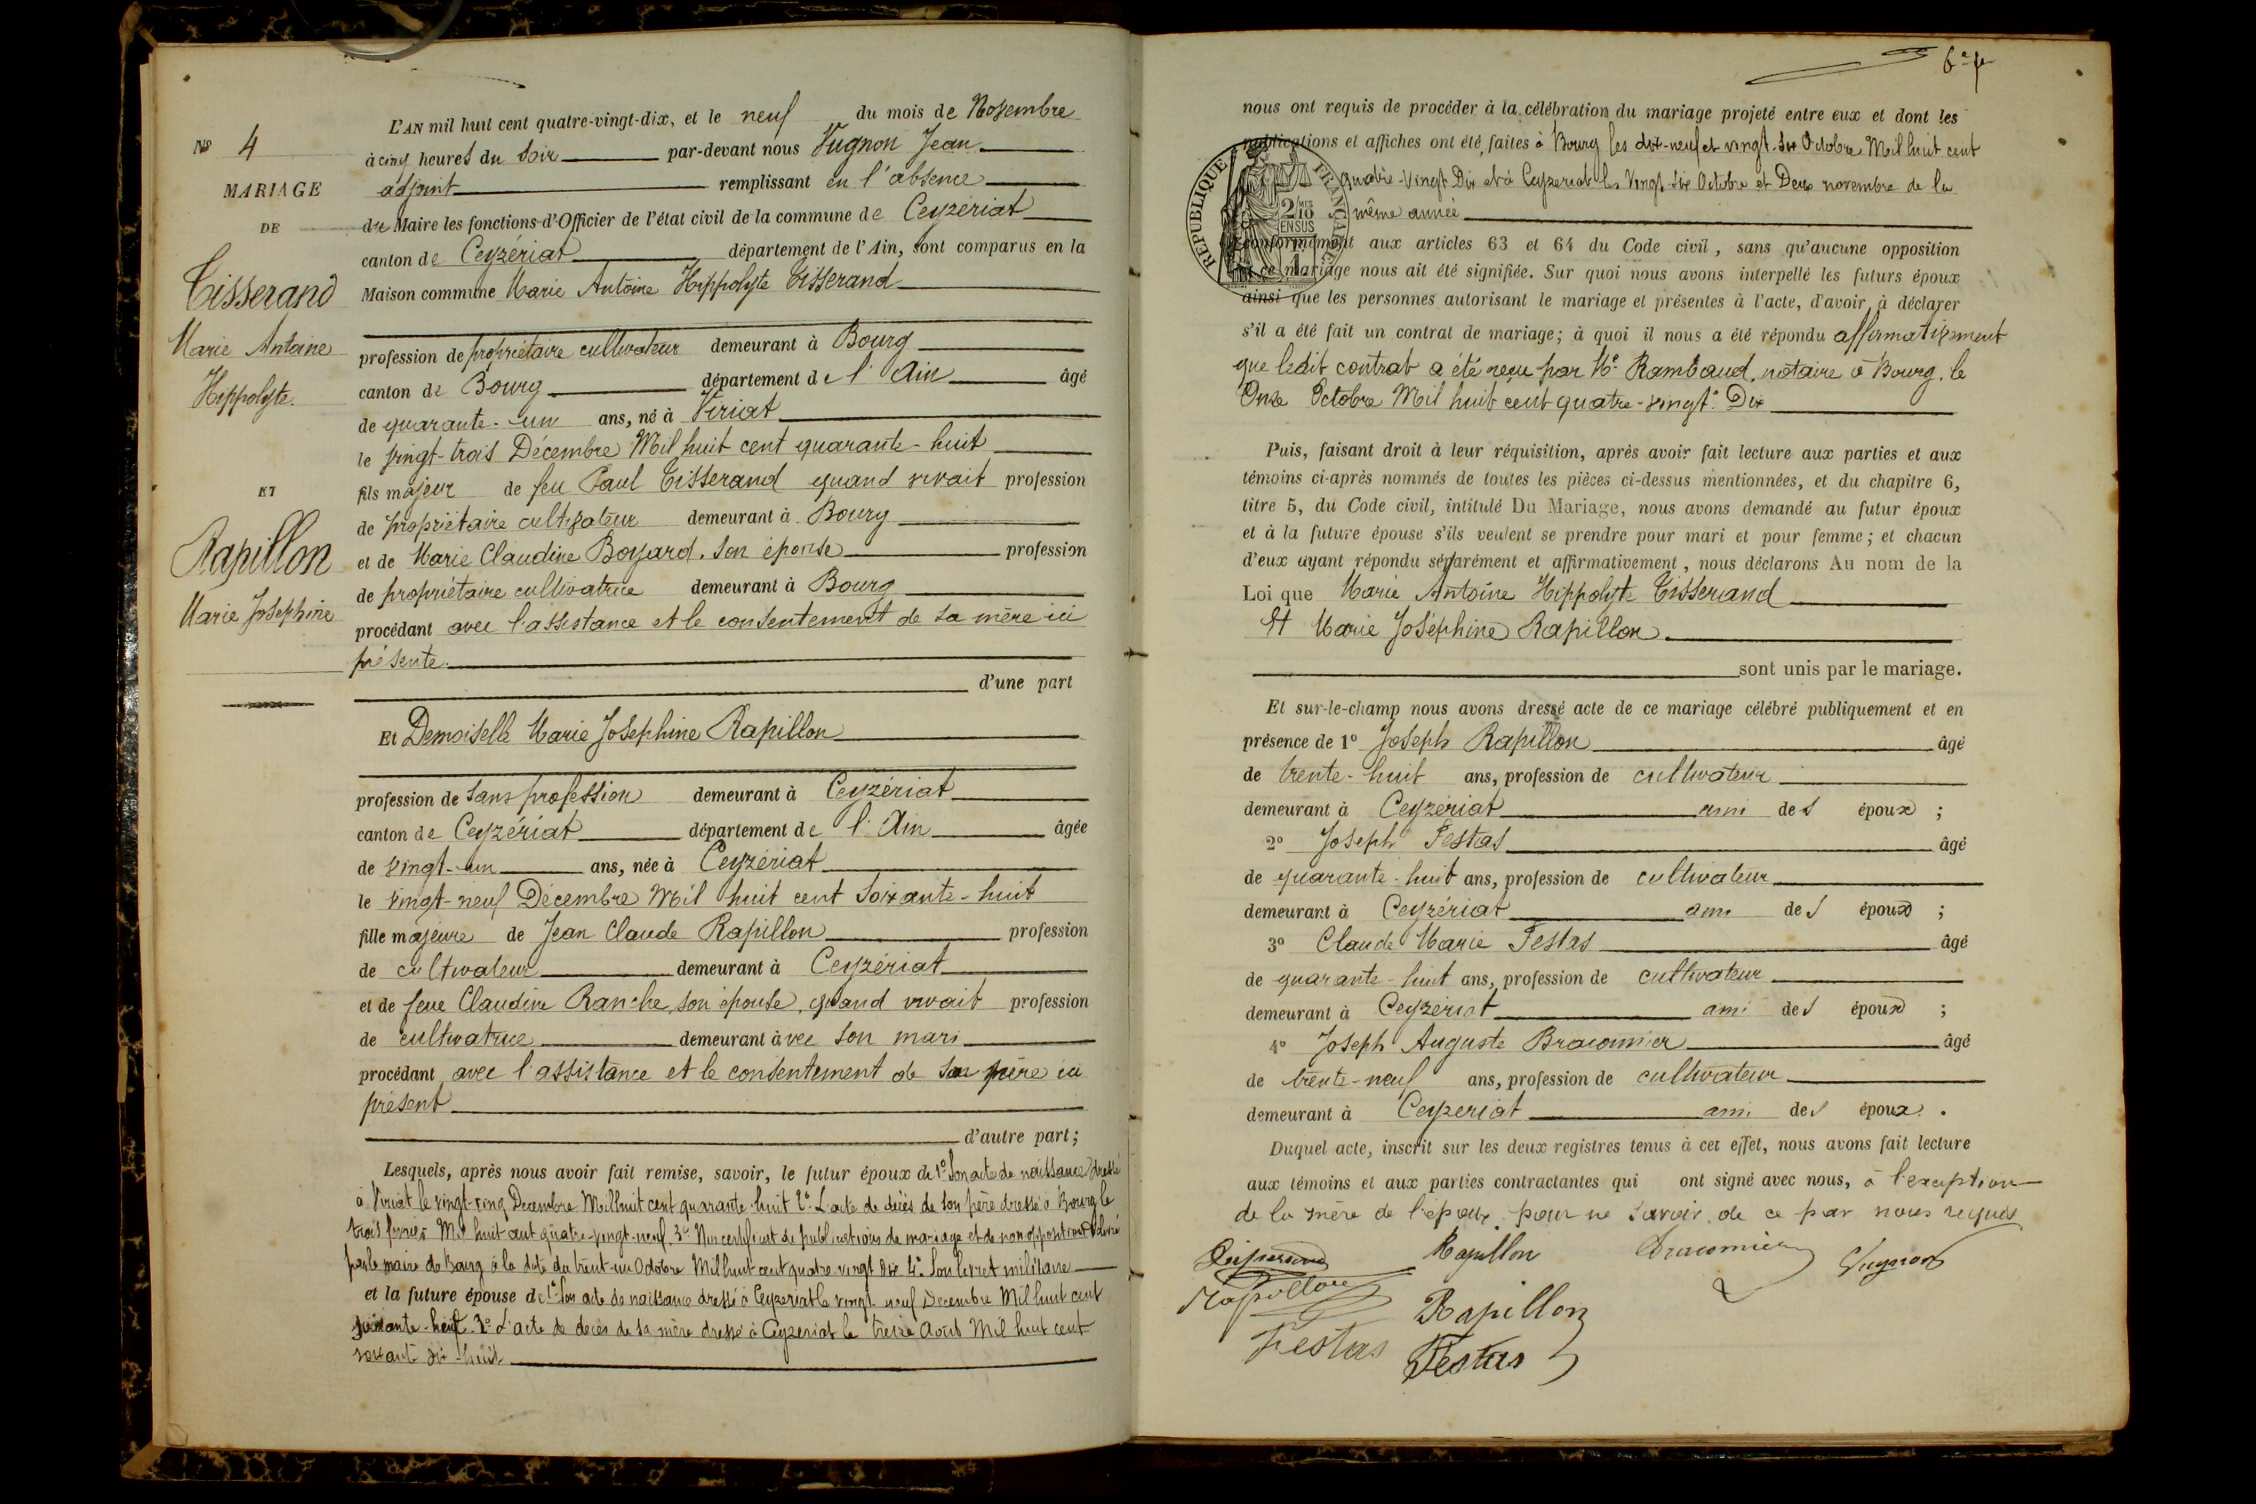 Nº 4
MARIAGE
DE
Tisserand
Marie Antoine
Hippolyte.
ET
Rapillon
Marie Joséphine
L'AN mil huit cent quatre-vingt-dix, et le neuf du mois de Novembre
à cinq heures du soir par-devant nous Vugnon Jean
adjoint remplissant en l'absence
du Maire les fonctions d'Officier de l'état civil de la commune de Ceyzériat
canton de Ceyzériat département de l'Ain, sont comparus en la
Maison commune Marie Antoine Hippolyte Tisserand
profession de propriétaire cultivateur demeurant à Bourg
canton de Bourg département de l'Ain âgé
de quarante-un ans, né à Viriat
le vingt-trois Décembre Mil huit cent quarante-huit
fils majeur de feu Paul Tisserand quand vivait profession
de propriétaire cultivateur demeurant à Bourg
et de Marie Claudine Boyard, son épouse profession
de propriétaire cultivatrice demeurant à Bourg
procédant avec l'assistance et le consentement de sa mère ici
présente.
d'une part
Et Demoiselle Marie Joséphine Rapillon
profession de sans profession demeurant à Ceyzériat
canton de Ceyzériat département de l'Ain âgée
de vingt-un ans, née à Ceyzériat
le vingt-neuf Décembre Mil huit cent soixante-huit
fille majeure de Jean Claude Rapillon profession
de cultivateur demeurant à Ceyzériat
et de feue Claudine Ranche, son épouse, quand vivait profession
de cultivatrice demeurant avec son mari
procédant avec l'assistance et le consentement de son père ici
présent
d'autre part;
Lesquels, après nous avoir fait remise, savoir, le futur époux de 1º Son acte de naissance dressé
à Viriat le vingt-cinq Décembre Mil huit cent quarante-huit 2º L'acte de décès de son père dressé à Bourg le
trois février Mil huit cent quatre-vingt-neuf. 3º Un certificat de publications de mariage et de non opposition délivré
par le maire de Bourg à la date du trent-un Octobre Mil huit cent quatre vingt dix 4º Son livret militaire
et la future épouse de 1º Son acte de naissance dressé à Ceyzeriat le vingt-neuf Décembre Mil huit cent
soixante-huit. 2º L'acte de décès de sa mère dressé à Ceyzeriat le treize Août Mil huit cent
soixante dix-huit
6e f
nous ont requis de procéder à la célébration du mariage projeté entre eux et dont les
publications et affiches ont été faites à Bourg les dix-neuf et vingt-six Octobre Mil huit cent
quatre-Vingt Dix et à Ceyzeriat les Vingt-six Octobre et Deux novembre de la
même année
RÉPUBLIQUE FRANÇAISE
2/10 EN SUS
conformément aux articles 63 et 64 du Code civil, sans qu'aucune opposition
à ce mariage nous ait été signifiée. Sur quoi nous avons interpellé les futurs époux
ainsi que les personnes autorisant le mariage et présentes à l'acte, d'avoir à déclarer
s'il a été fait un contrat de mariage; à quoi il nous a été répondu affirmativement
que ledit contrat a été reçu par Me Rambaud, notaire à Bourg, le
Onze Octobre Mil huit cent quatre-vingt-Dix
Puis, faisant droit à leur réquisition, après avoir fait lecture aux parties et aux
témoins ci-après nommés de toutes les pièces ci-dessus mentionnées, et du chapitre 6,
titre 5, du Code civil, intitulé Du Mariage, nous avons demandé au futur époux
et à la future épouse s'ils veulent se prendre pour mari et pour femme; et chacun
d'eux ayant répondu séparément et affirmativement, nous déclarons Au nom de la
Loi que Marie Antoine Hippolyte Tisserand
Et Marie Joséphine Rapillon
sont unis par le mariage.
Et sur-le-champ nous avons dressé acte de ce mariage célébré publiquement et en
présence de 1º Joseph Rapillon âgé
de trente-huit ans, profession de cultivateur
demeurant à Ceyzériat ami des époux ;
2º Joseph Festas âgé
de quarante-huit ans, profession de cultivateur
demeurant à Ceyzériat ami des époux ;
3º Claude Marie Festas âgé
de quarante-huit ans, profession de cultivateur
demeurant à Ceyzériat ami des époux ;
4º Joseph Auguste Braconnier âgé
de trente-neuf ans, profession de cultivateur
demeurant à Ceyzeriat ami des époux .
Duquel acte, inscrit sur les deux registres tenus à cet effet, nous avons fait lecture
aux témoins et aux parties contractantes qui ont signé avec nous, à l'exception
de la mère de l'époux pour ne savoir de ce par nous requis
Tisserand Rapillon Braconnier Vugnon
Rapillon Rapillon
Festas Festas